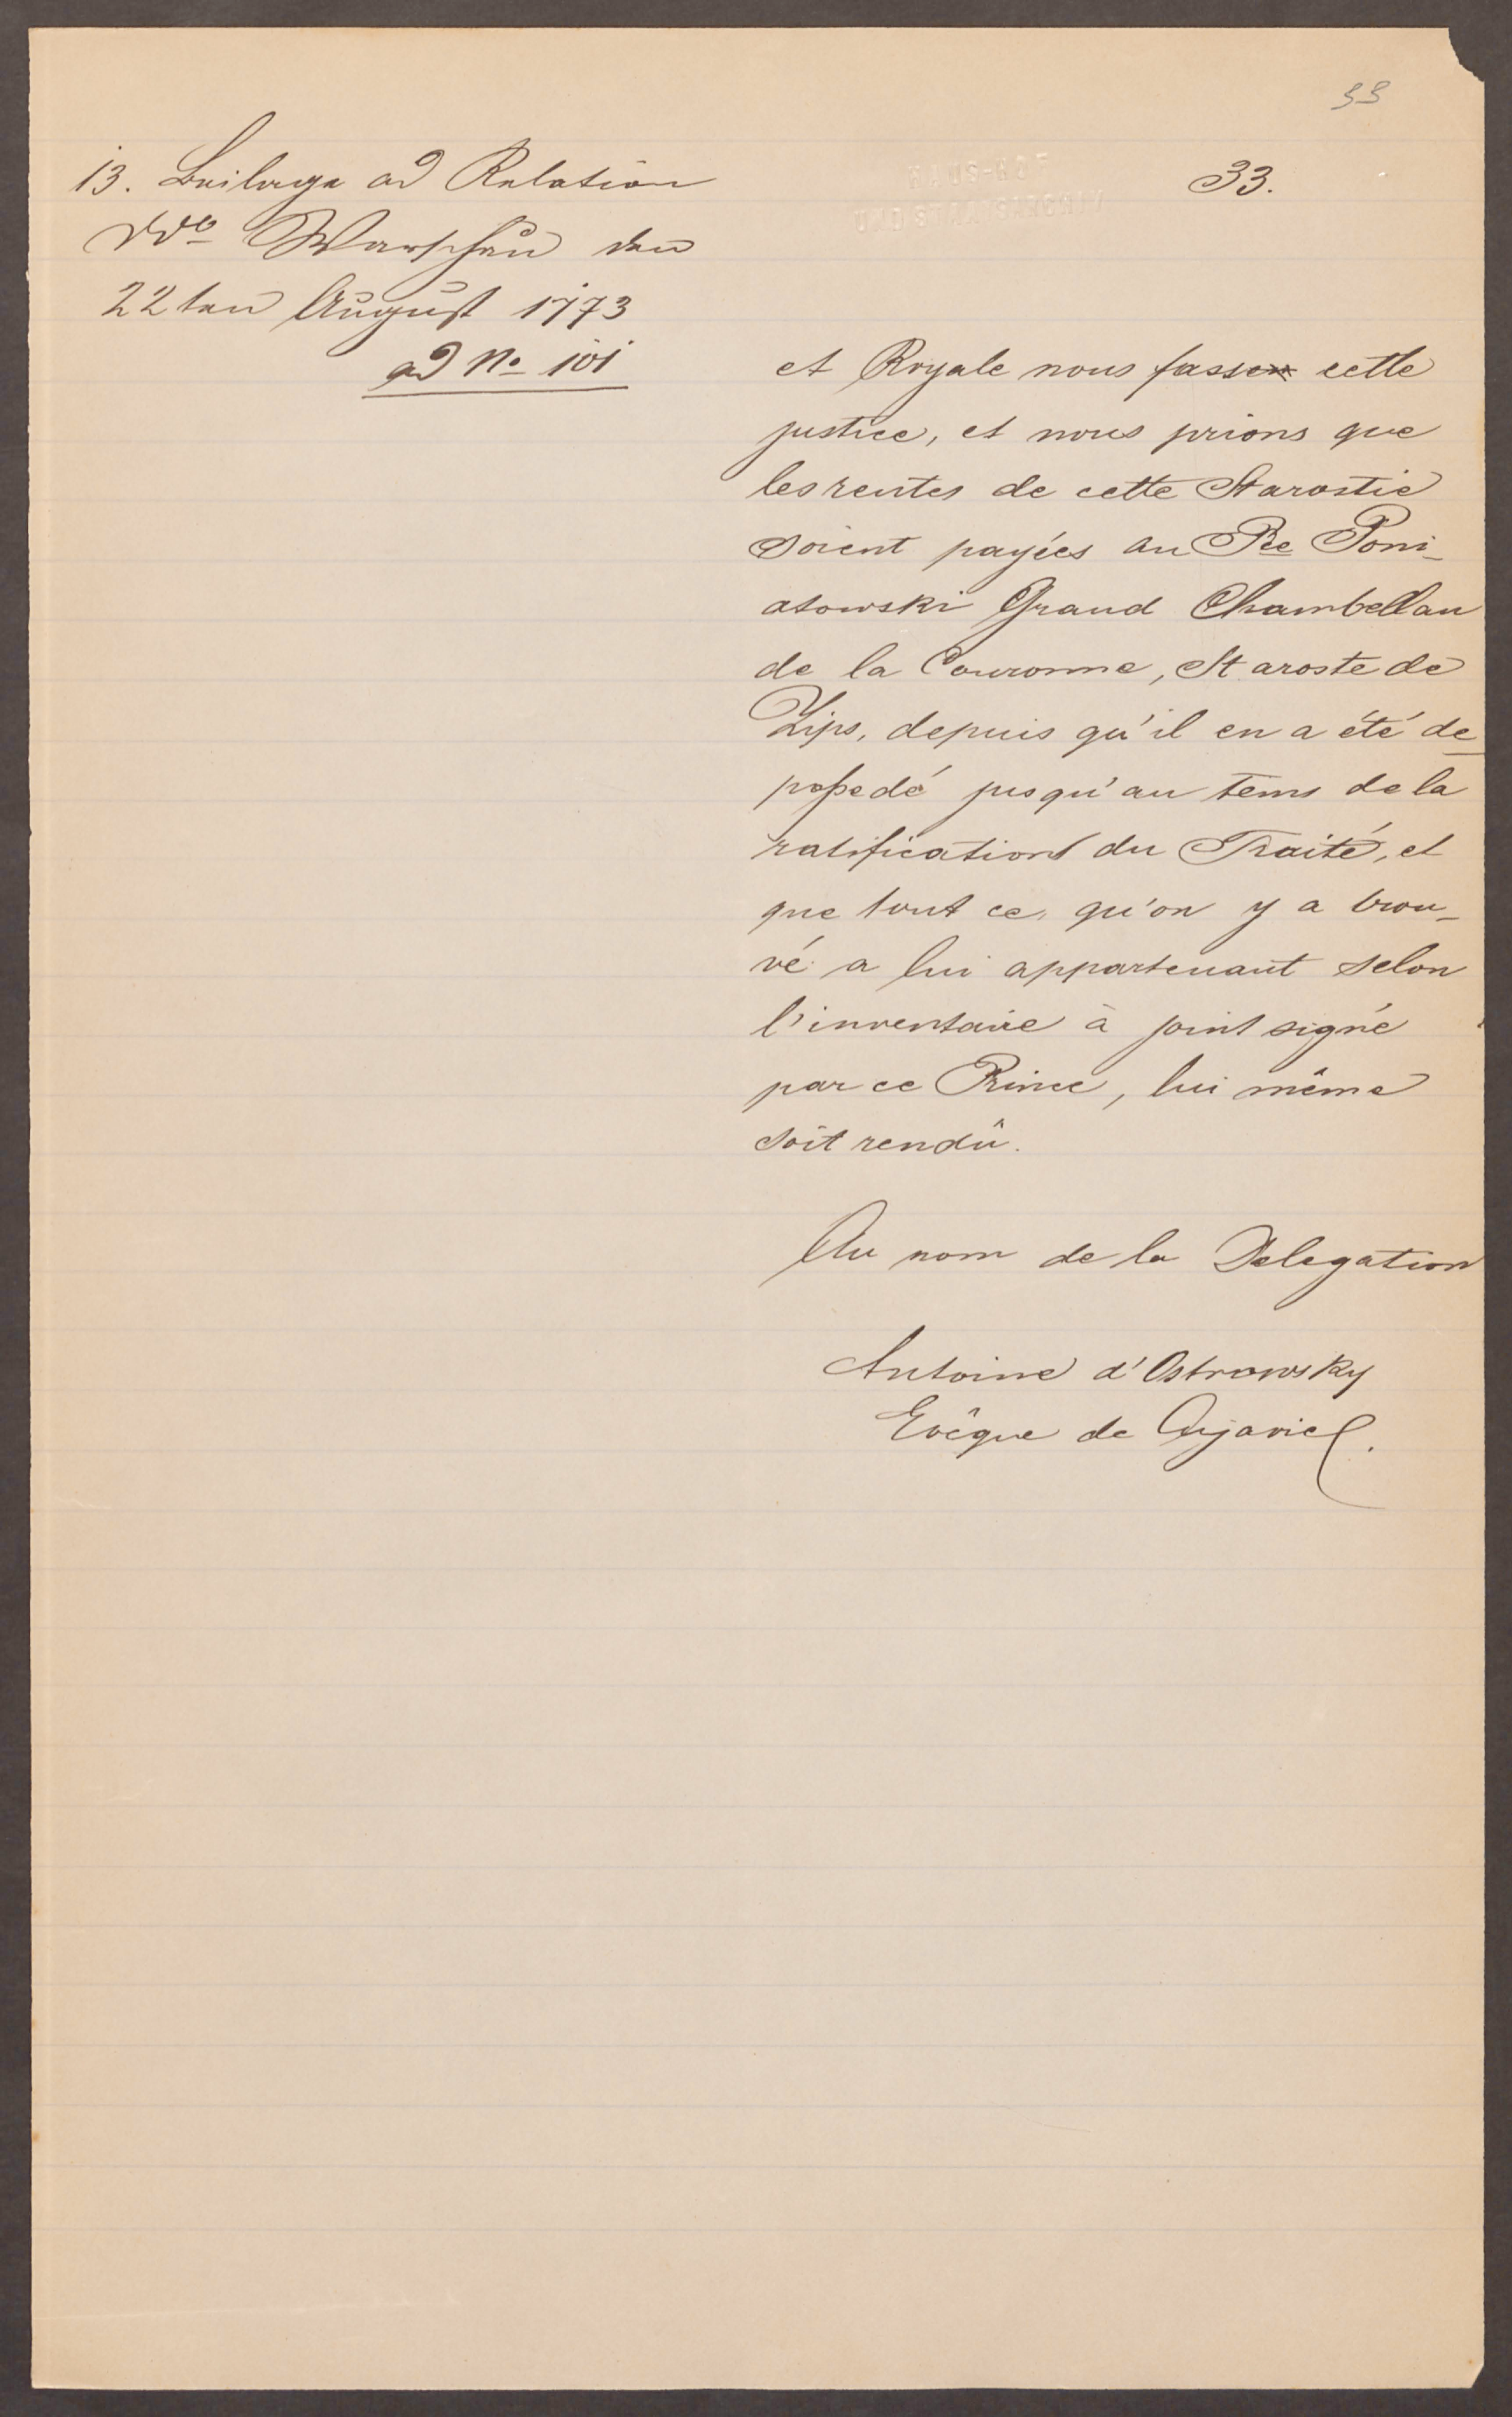 33
13. Beilage ad Relation
ddo Warschau den
22ten August 1773
ad No 101
33.
et Royale nous fasse cette
justice, et nous prions que
les rentes de cette Starostie
soient payées au Pce Poni-
atowski Grand Chambellan
de la Couronne, Staroste de
Zips, depuis qu'il en a été de
possedé jusqu'au tems de la
ratification du Traité, et
que tout ce, qu'on y a trou-
vé a lui appartenant selon
l'inventaire à joint signé
par ce Prince, lui même
soit rendû.
Au nom de la Delegation
Antoine d'Ostrowsky
Evêque de Cujavie.